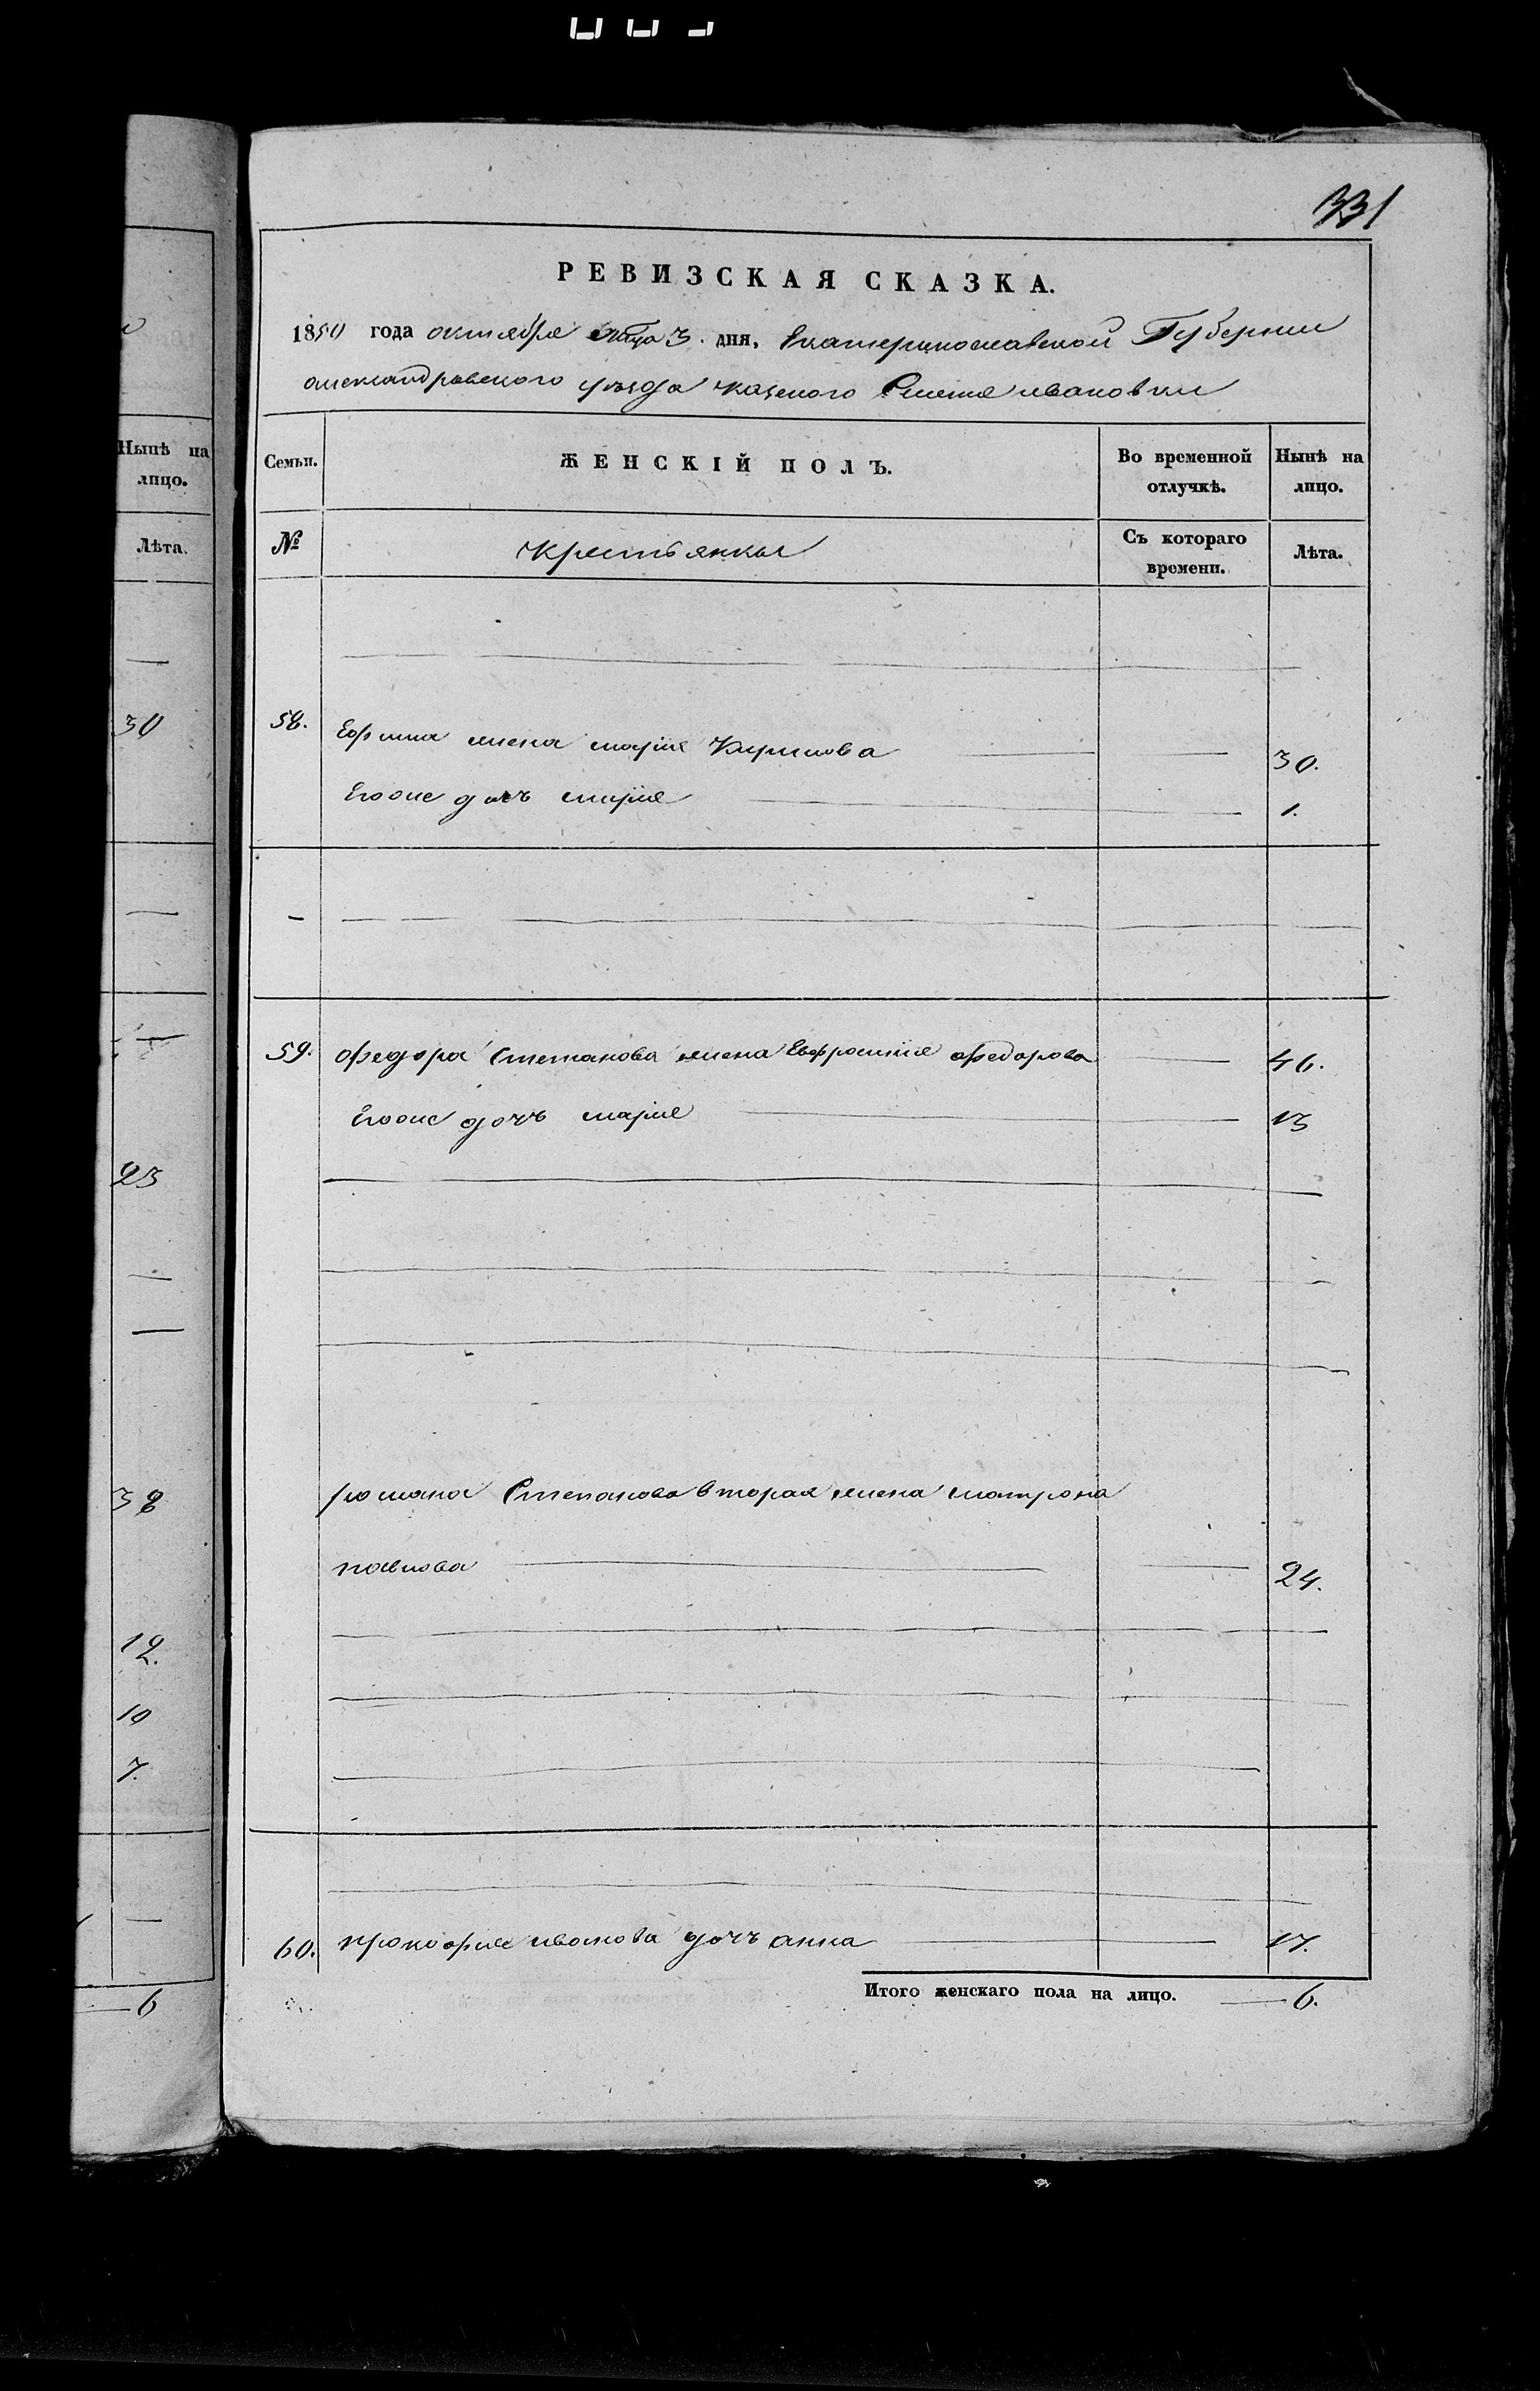 331
РЕВИЗСКАЯ СКАЗКА.
1850 года октября мца 3. дня, Екатеринославской Губернии
александровского уезда казеного Селения ивановки
Нынѣ на лицо.
Семьи.
ЖЕНСКІЙ ПОЛЪ.
Во временной отлучкѣ.
Нынѣ на лицо.
Лѣта.
№
крестьянки
Съ котораго времени.
Лѣта.
30
58. Ефима жена марія Кирилова 30.
Егоже дочъ марія 1.
59. федора Степанова жена Евфросинія федорова 46.
Егоже дочъ марія 13
23
38
романа Степанова вторая жена матрона
павлова 24.
12.
10
7.
60. прокофия иванова дочъ анна 17.
Итого женскаго пола на лицо. 6.
6